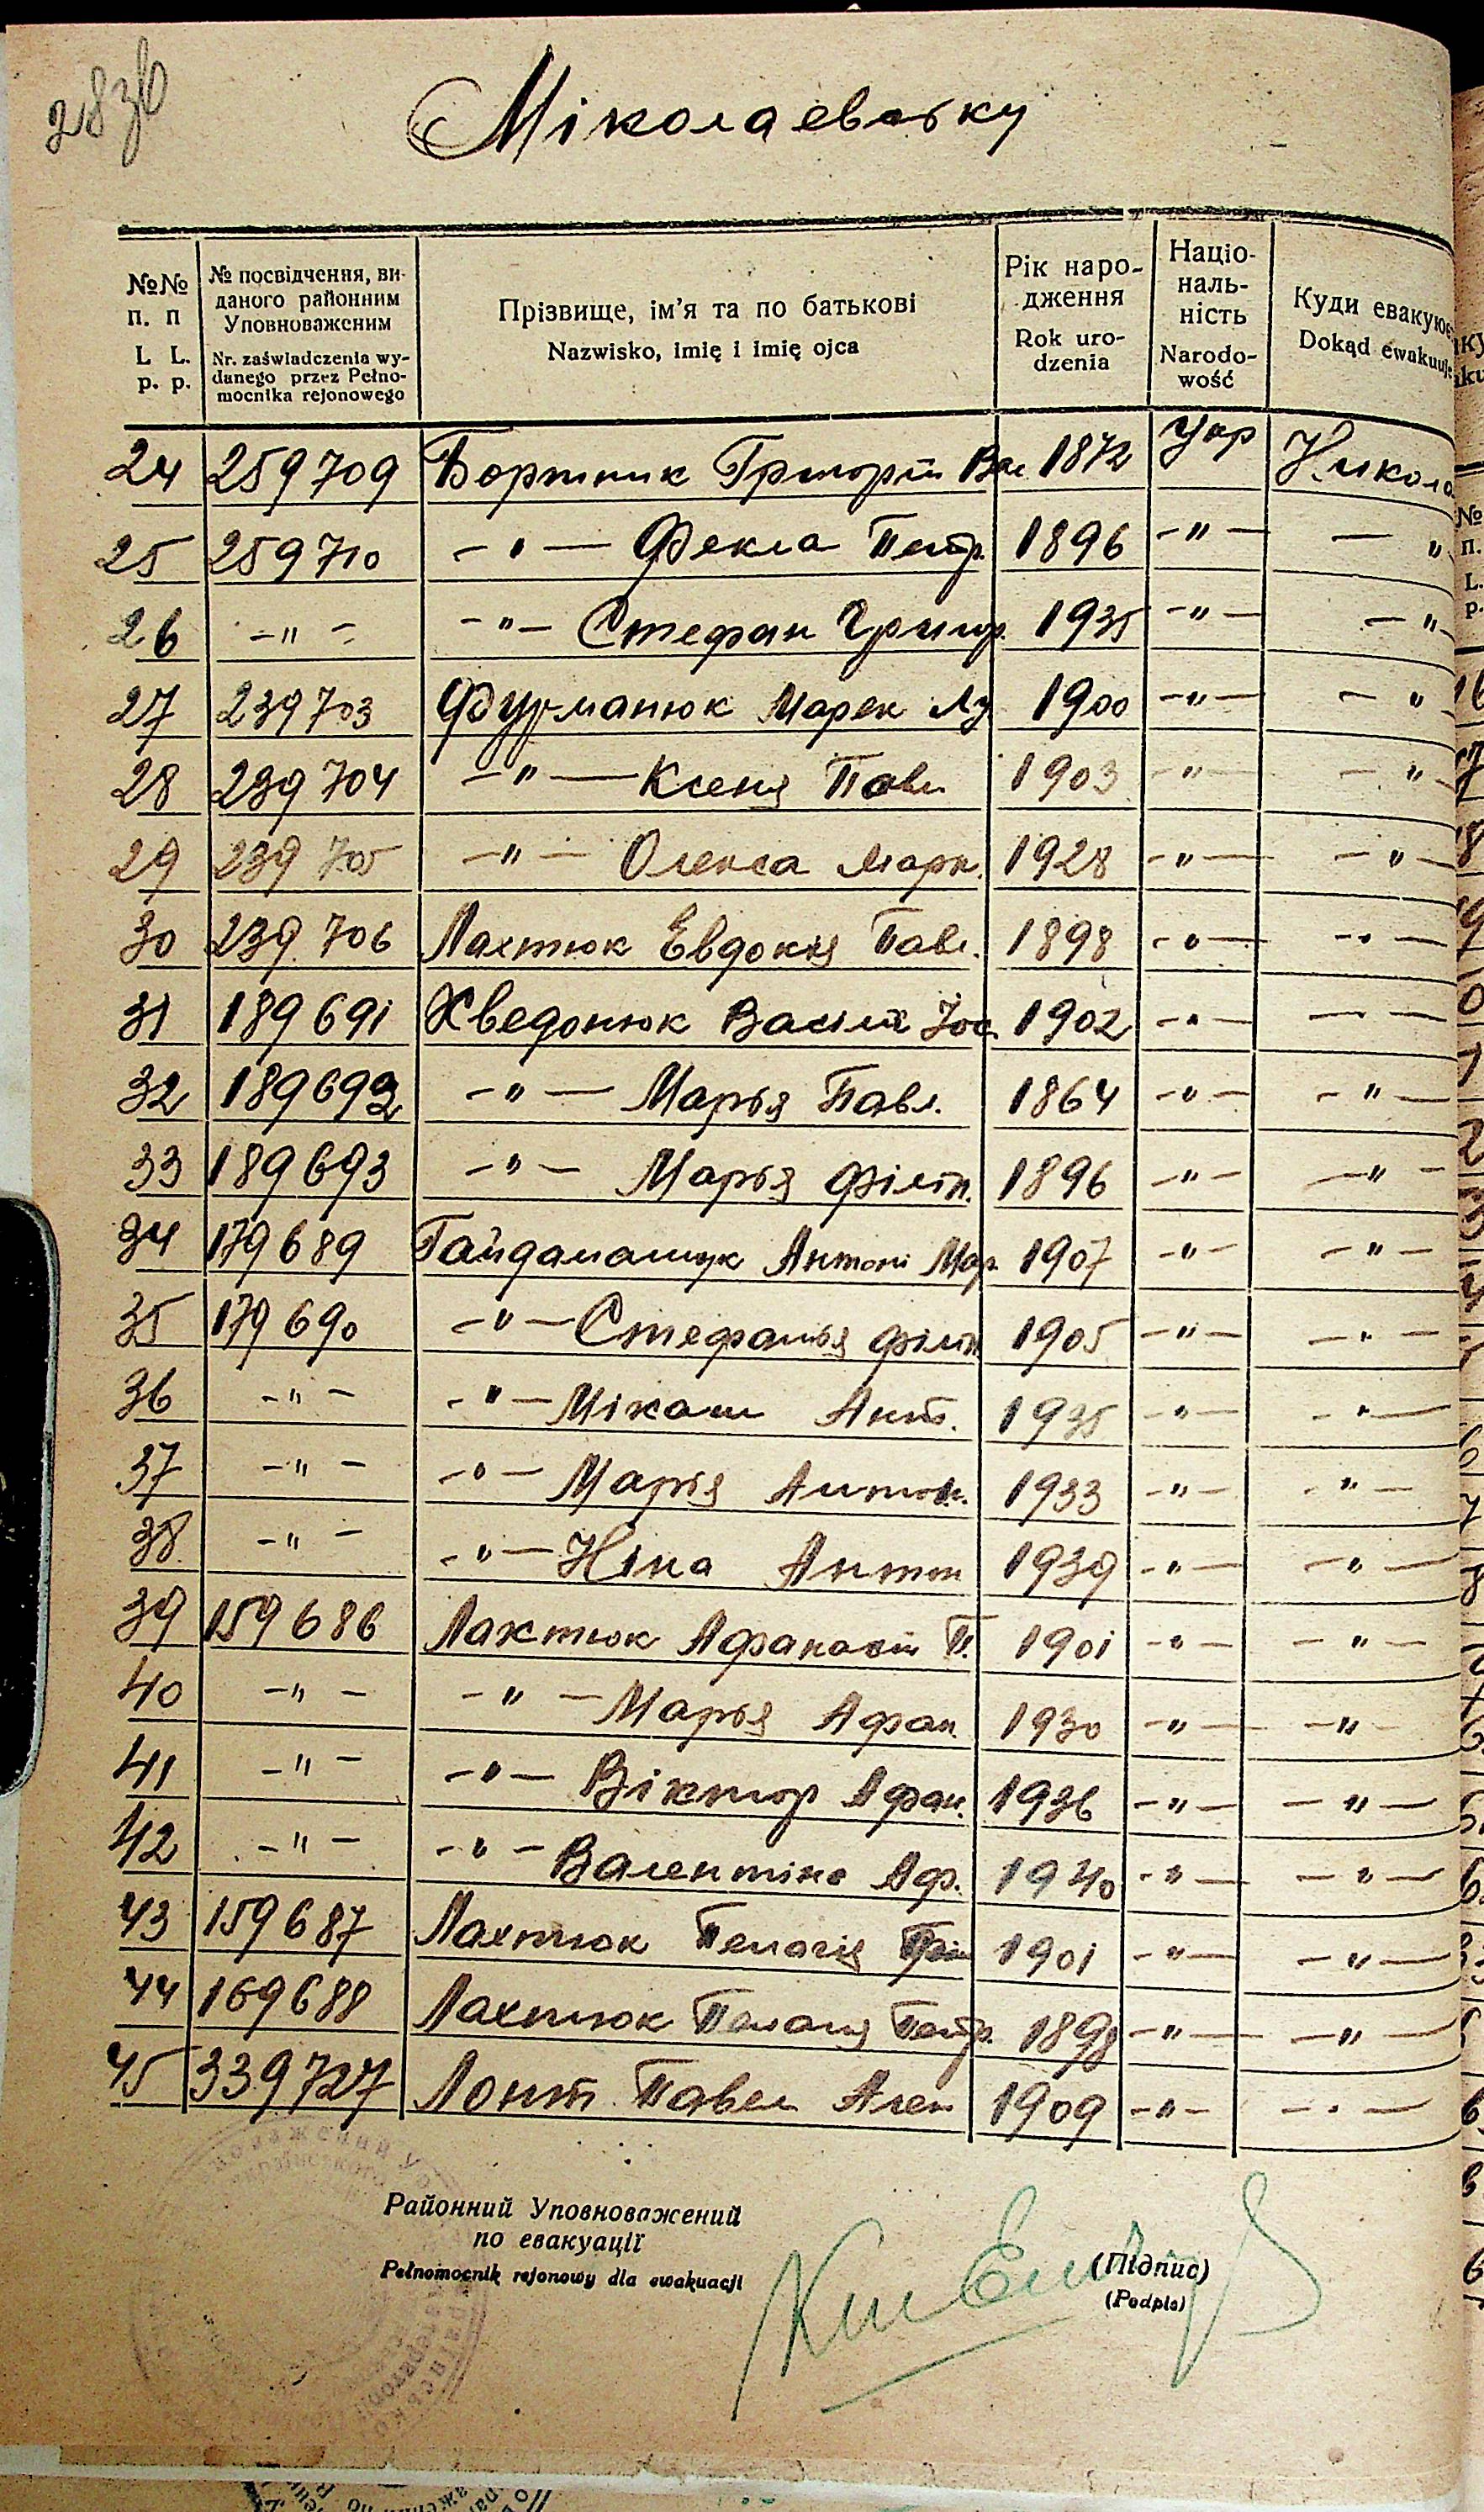 283б
Міколаевську
№№ п. п L L. p. p. | № посвідчення, виданого районним Уповноваженим Nr. zaświadczenia wydanego przez Pełnomocnika rejonowego | Прізвище, ім'я та по батькові Nazwisko, imię i imię ojca | Рік народження Rok urodzenia | Національність Narodowość | Куди евакує Dokąd ewakuuje
24 259709 Бортник Григорій Вас 1872 Укр Никола
25 259710 -"- Фекла Петр. 1896 -"- -"
26 -"- -"- Стефан Григор. 1935 -"- -"-
27 239703 Фурманюк Марек Лу 1900 -"- -"
28 239704 -"- Ксеня Павл 1903 -"- -"-
29 239705 -"- Олекса Марк. 1928 -"- -"-
30 239706 Лахтюк Евдокия Павл. 1898 -"- -"-
31 189691 Хведонюк Васіли Іос. 1902 -"- -"-
32 189692 -"- Марья Павл. 1864 -"- -"-
33 189693 -"- Марья Філіп. 1896 -"- -"-
34 179689 Гайдамащук Антоні Мар. 1907 -"- -"-
35 179690 -"- Стефанья Філіп 1905 -"- -"-
36 -"- -"- Мікаш Ант. 1935 -"- -"-
37 -"- -"- Марья Антон. 1933 -"- -"-
38 -"- -"- Ніна Антон 1939 -"- -"-
39 159686 Лахтюк Афанасій П. 1901 -"- -"-
40 -"- -"- Марья Афан. 1930 -"- -"-
41 -"- -"- Віктор Афан. 1936 -"- -"-
42 -"- -"- Валентіна Аф. 1940 -"- -"-
43 159687 Лахтюк Пелагія 1901 -"- -"-
44 169688 Лахтюк Пелагия Петр. 1898 -"- -"-
45 339727 Лонт Павел Алек 1909 -"- -"-
Районний Уповноважений
по евакуації
Pełnomocnik rejonowy dla ewakuacji
(Підпис)
(Podpis)